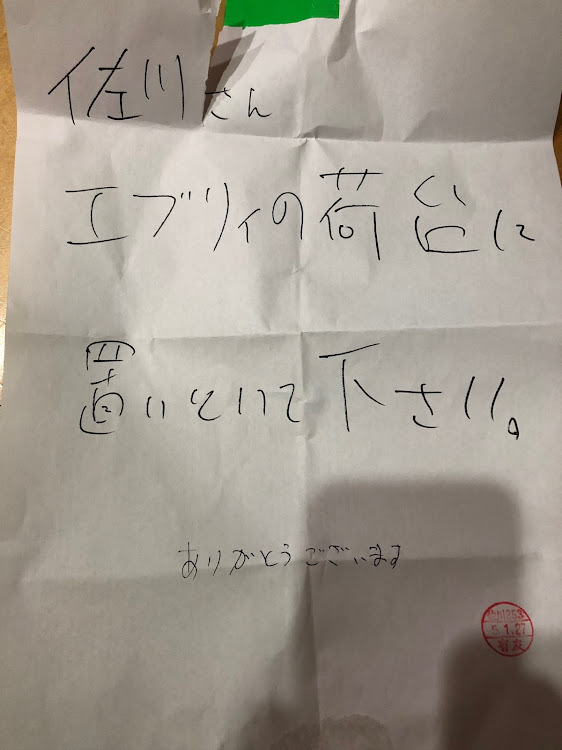 佐川さん
エブリィの荷台に
置いといて下さい。
ありがとうございます
5.1.27